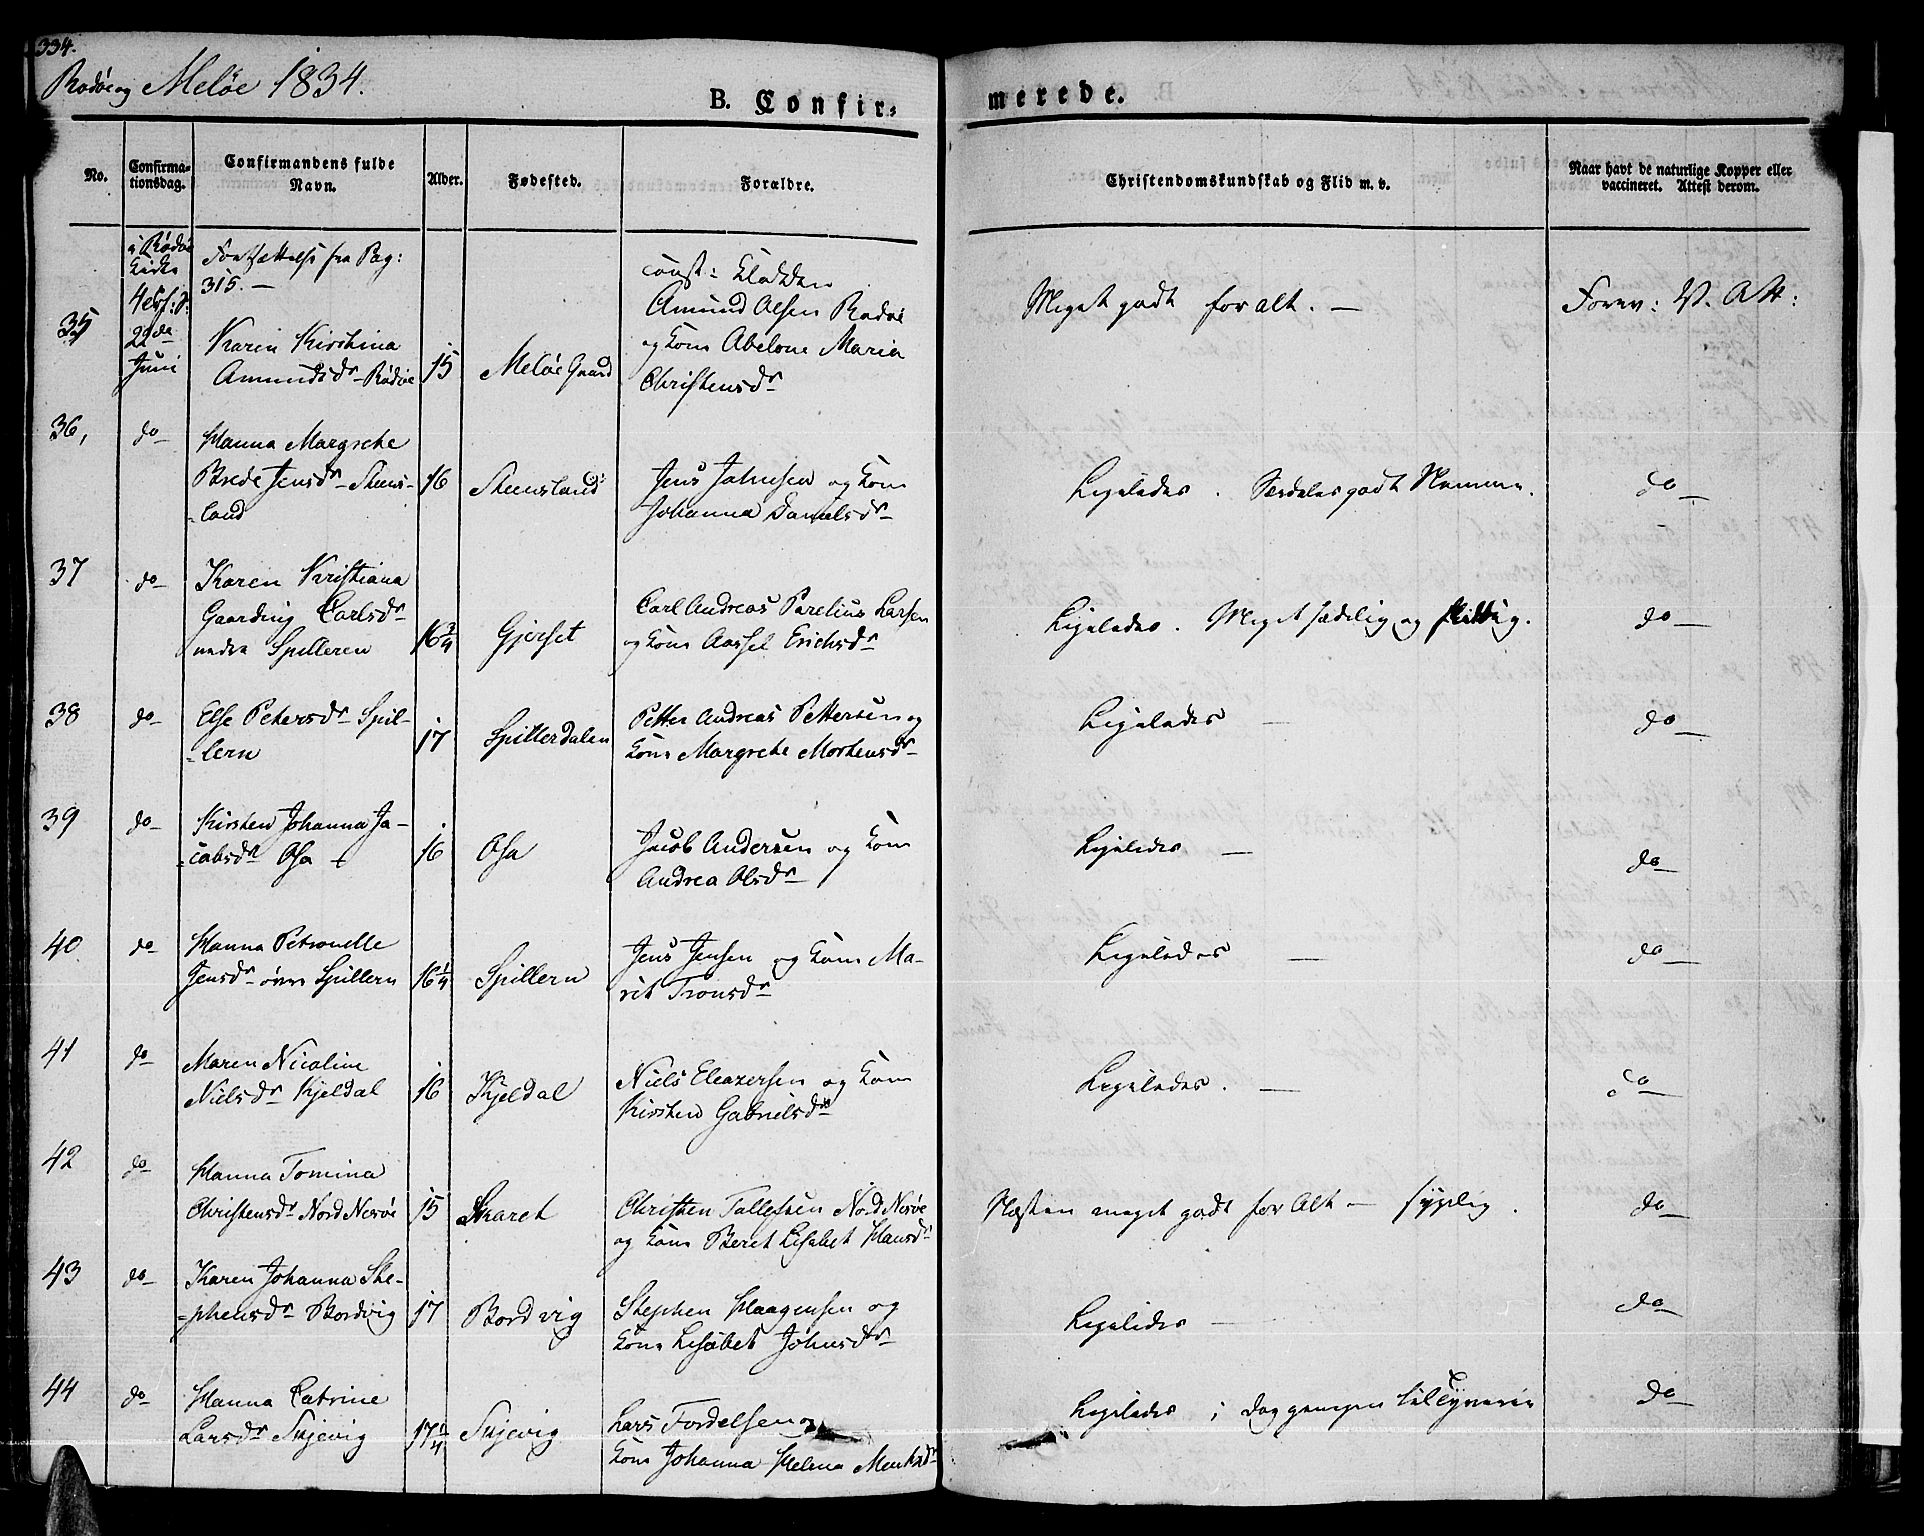 334.
Rødøe og Meløe 1834.
B. Confir-
merede.
No.
Confirma-
tionsdag.
Confirmandens fulde
Navn.
Alder.
Fødested.
Forældre.
Christendomskundskab og Flid m. v.
Naar havt de naturlige Kopper eller
vaccineret. Attest derom.
i Rødøe
Kirke
22de
Juni
Fortsættelse fra Pag:
315. —
35
Karen Kirstina
Amundsdr Rødøe
15
Meløe Gaard
const: Klokker
Amund Olsen Rødøe
og Kone Abelone Maria
Christensdr
Meget godt for alt. —
Forev: V. Att:
36,
do
Hanna Margrethe
Brede Jensdr Steens-
-land
16
Steensland
Jens Johnsen og Kone
Johanna Danielsdr
Ligeledes. Særdeles godt Nemme.
do
37
do
Karen Kristiana
Gaarding Carlsdr
nedre Spilleren
16 3/4
Gjerset
Carl Andreas Parelius Larsen
og Kone Aassel Erichsdr
Ligeledes. Meget sædelig og flittig.
do
38
do
Else Petersdr Spil-
-lern
17
Spillerdalen
Petter Andreas Pettersen og
Kone Margrete Mortensdr
Ligeledes —
do
39
do
Kirsten Johanna Ja-
-cobsdr Osa
16
Osa
Jacob Andersen og Kone
Andrea Olsdr
Ligeledes —
do
40
do
Hanna Petronelle
Jensdr øvre Spillern
16 1/4
Spillern
Jens Jensen og Kone Ma-
rit Tronsdr
Ligeledes —
do
41
do
Maren Nicoline
Nielsdr Kjeldal
16
Kjeldal
Niels Eleazersen og Kone
Kirsten Gabrielsdr
Ligeledes. —
do
42
do
Hanna Tomina
Christensdr Nord Nesøe
15
Skaret
Christen Tollefsen Nord Nesøe
og Kone Beret Lisabet Hansdr
Næsten meget godt for Alt — sygelig.
do
43
do
Karen Johanna Ste-
-phensdr Bordvig
17
Bordvig
Stephen Haagensen og
Kone Lisabet Johnsdr
Ligeledes —
do
44
do
Hanna Catrine
Larsdr Snjevig
17 1/4
Snjevig
Lars Tordelsen og
Kone Johanna Helena Mentzdr
Ligeledes
do